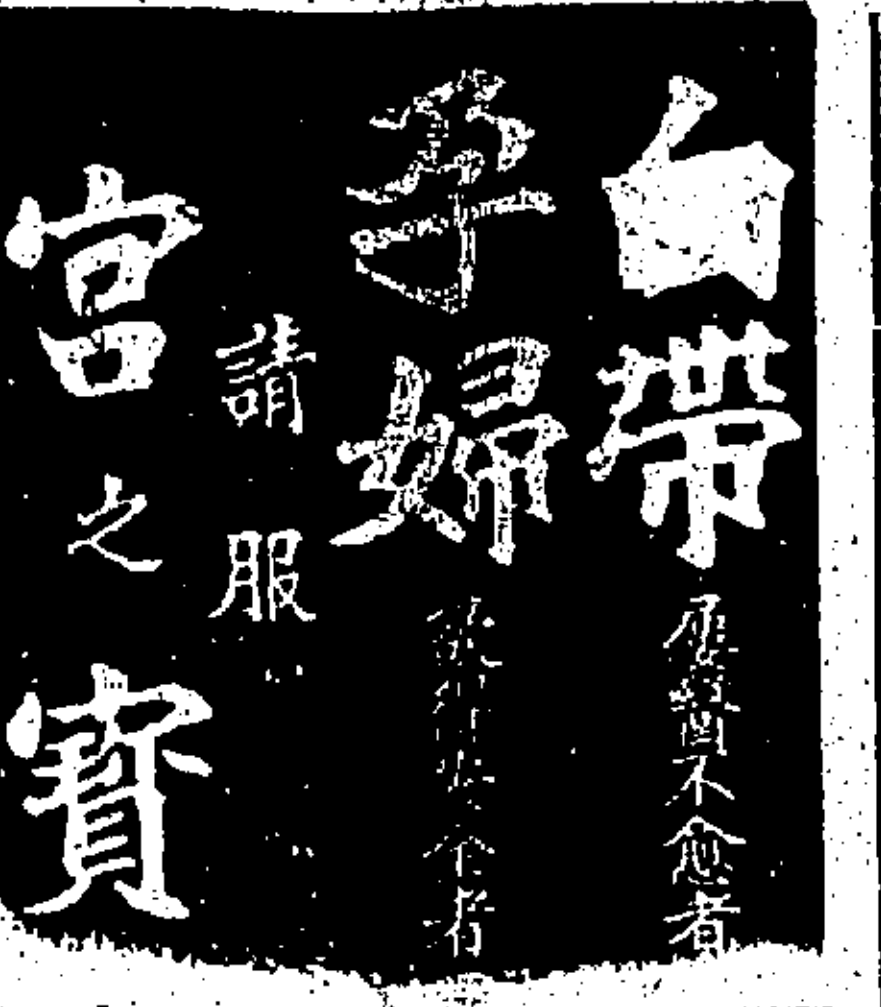 白帶屢醫不愈者
孕婦者
請服
宮之寶